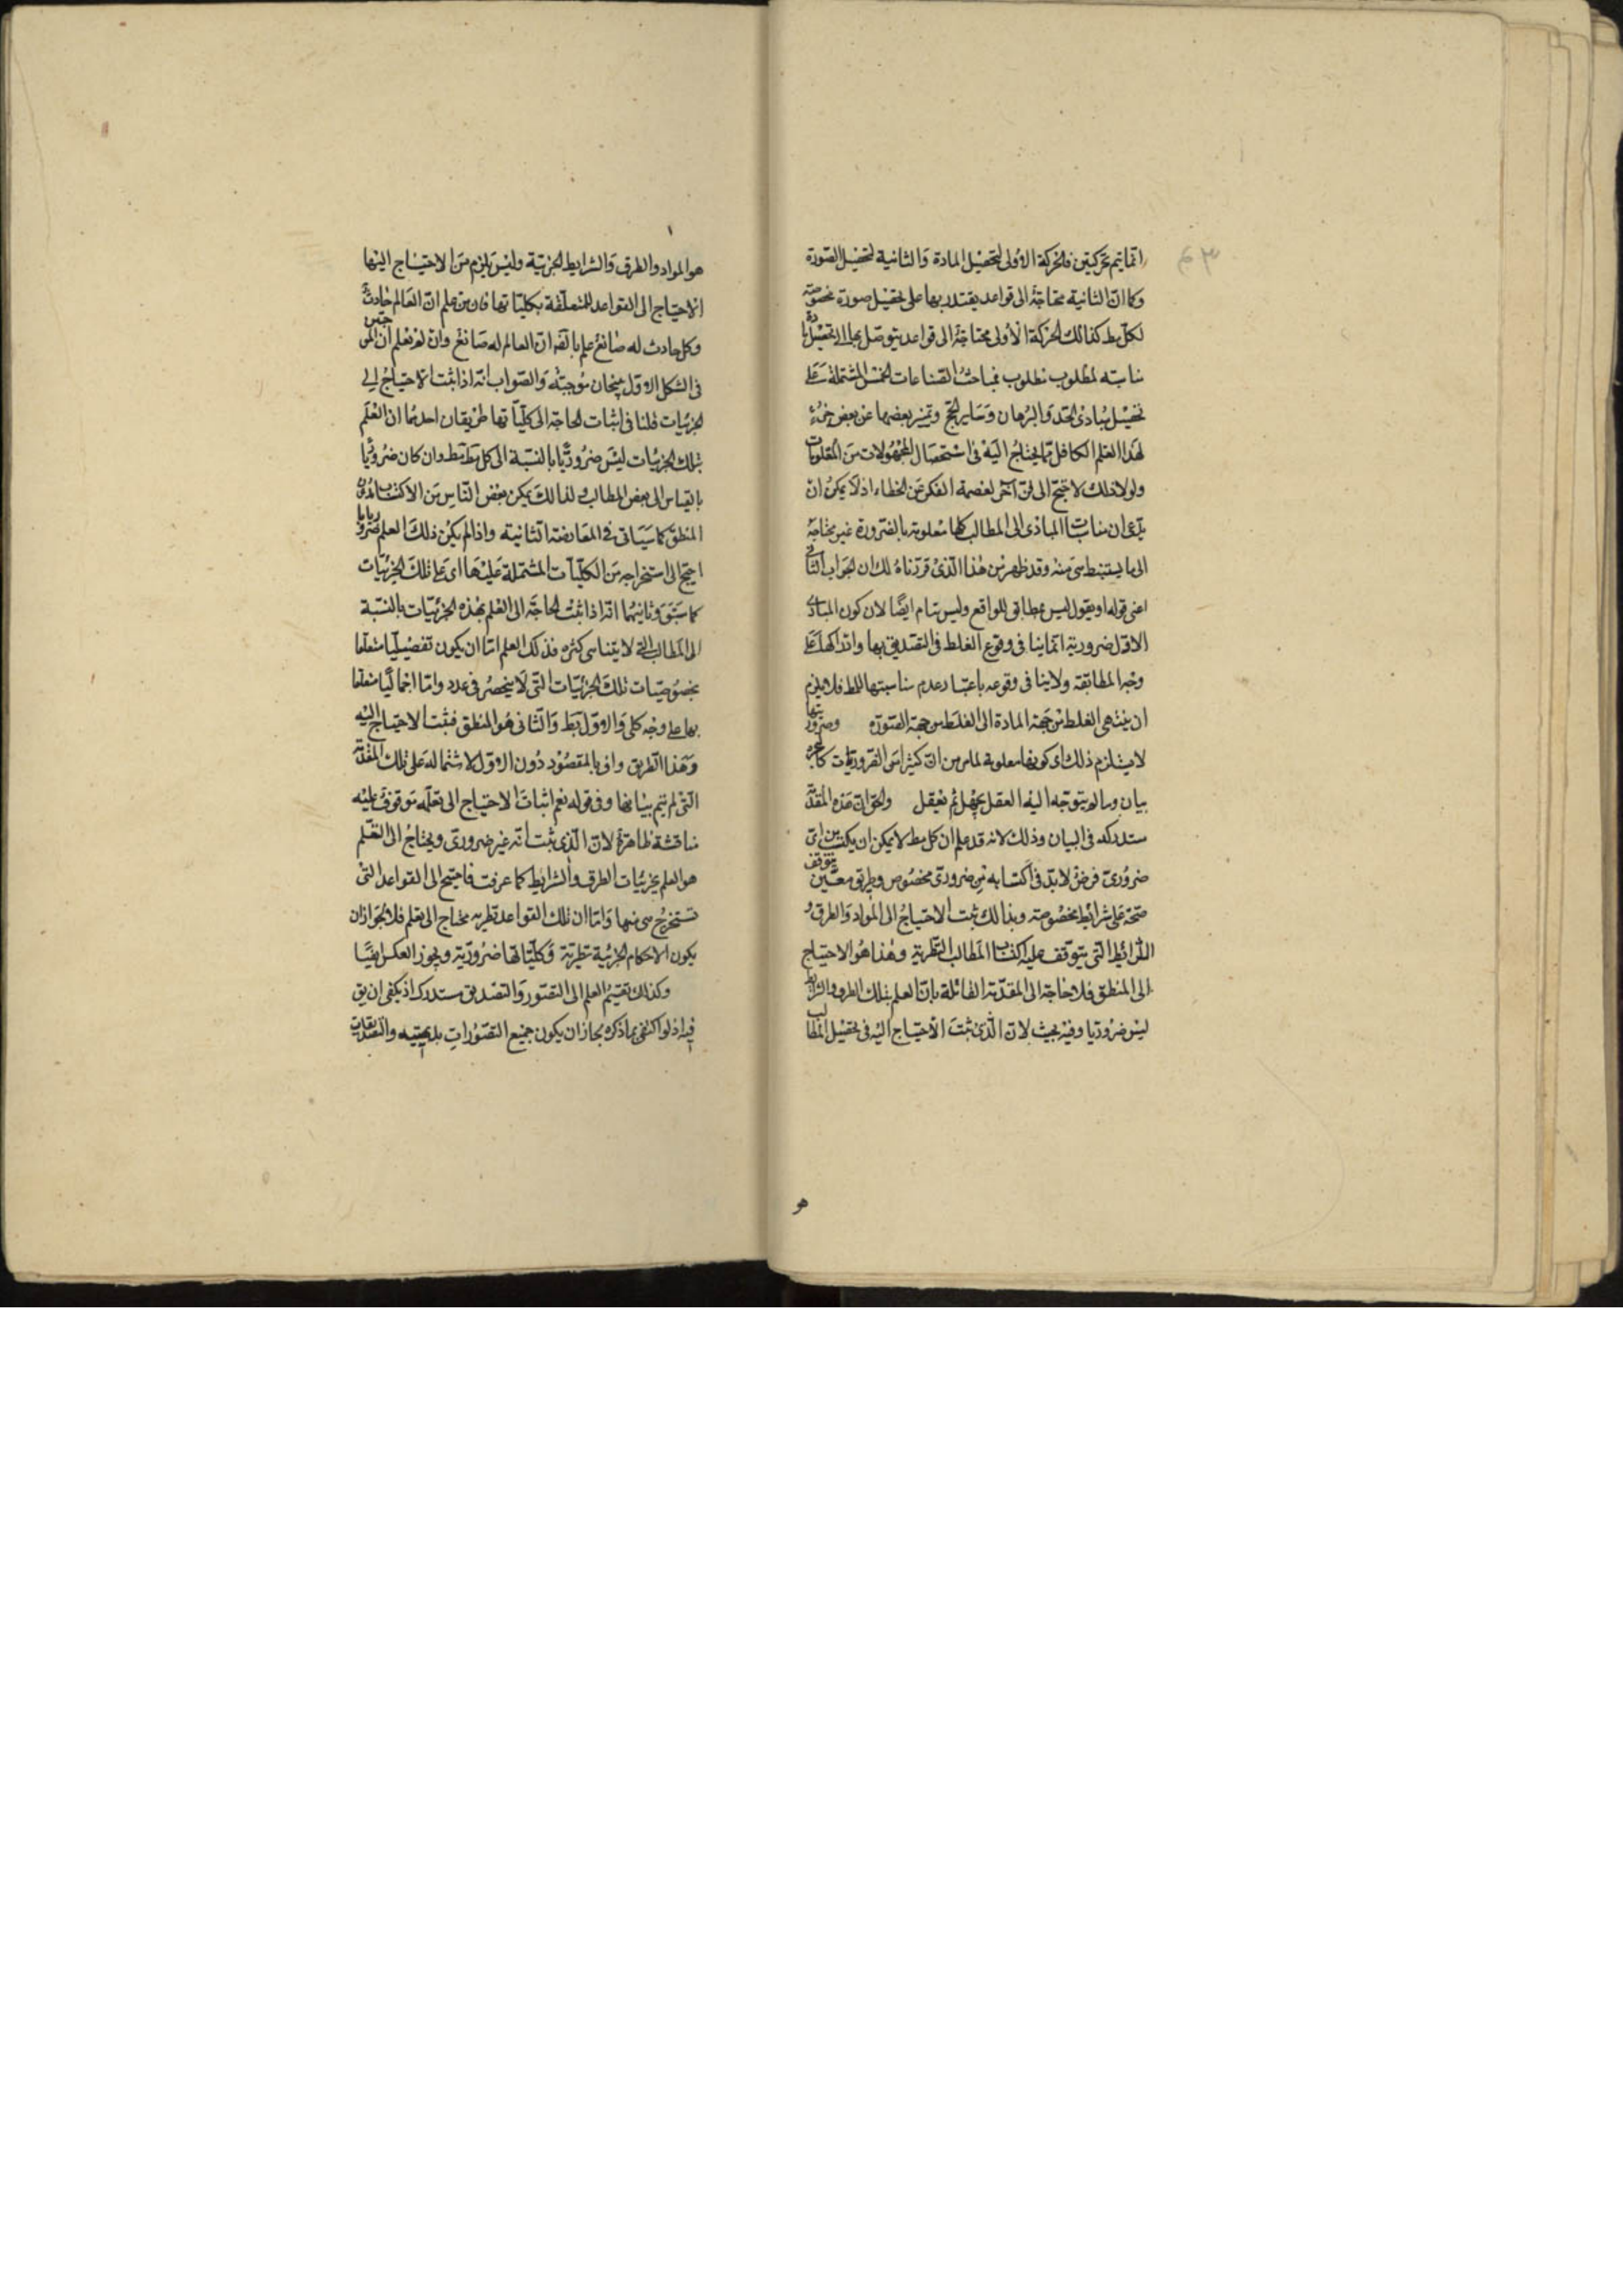 انما يتم بحركتين فالحركة الاولى لتحصيل المادة والثانية لتحصيل الصورة
وكما ان الثانية محتاجة الى قواعد يقتدر بها على تحصيل صورة مخصوصة
لكل مط كذلك الحركة الاولى محتاجة الى قواعد يتوصل بها الى تحصيل مادة
مناسبة لمطلوب مطلوب فمباحث الصناعات الخمس المشتملة على
تحصيل مبادى الحد والبرهان وساير الحجج وتميز بعضها عن بعض جزء
لهذا العلم الكافل بما يحتاج اليه فى استحصال المجهولات من المعلومات
ولولا ذلك لاحتيج الى فن آخر لعصمة الفكر عن الخطاء اذ لا يمكن ان
يدعى ان مناسبات المبادى الى المطالب كلها معلومة بالضرورة غير محتاجة
الى ما يستنبط هى منه وقد ظهر من هذا الذى قررناه لك ان الجواب الثانى
اعنى قوله او يقول ليس بمطابق للواقع وليس بتام ايضا لان كون المبادى
الاول ضرورية انما ينافى وقوع الغلط فى التصديق بها وادراكها على
وجه المطابقة ولا ينافى وقوعه باعتبار عدم مناسبتها للمط فلا يلزم
ان ينتهى الغلط من جهة المادة الى الغلط من جهة الصورة وضروريتها
لا يستلزم ذلك اى كونها معلومة لما مر من ان كثيرا من الضروريات
بيان وما لم يتوجه اليه العقل يجهل ثم يعقل والحق ان هذه المقدمة
مستدركه فى البيان وذلك لانه قد علم ان كل مط لا يمكن ان يكتسب من اى
ضرورى فرض لابد فى اكتسابه من ضرورى مخصوص وطريق معين يتوقف
صحته على شرائط مخصوصة وبذلك ثبت الاحتياج الى المواد والطرق و
الشرائط التى يتوقف عليه اكتساب المطالب النظرية وهذا هو الاحتياج
الى المنطق فلا حاجة الى المقدمة القائلة بان العلم بتلك الطرق والشرائط
ليس ضروريا وفيه بحث لان الذى ثبت الاحتياج اليه فى تحصيل المطالب
هو
هو المواد والطرق والشرايط الجزئية وليس يلزم من الاحتياج اليها
الاحتياج الى القواعد المتعلقة بكلياتها فان من علم ان العالم حادث
وكل حادث له صانع علم بالضرورة ان العالم له صانع وان لم يعلم ان الموجبتين
فى الشكل الاول ينتجان موجبة والصواب انه اذا ثبت الاحتياج الى
الجزئيات فلنا فى اثبات الحاجة الى كلياتها طريقان احدهما ان العلم
بتلك الجزئيات ليس ضروريا بالنسبة الى كل مط مط وان كان ضروريا
بالقياس الى بعض المطالب ولذلك يمكن بعض الناس من الاكتساب بدون
المنطق كما سياتى فى المعارضة الثانية واذا لم يكن ذلك العلم ضروريا
احتيج الى استخراجه من الكليات المشتملة عليها اى على تلك الجزئيات
كما سبق وثانيهما انه اذا ثبت الحاجة الى العلم بهذه الجزئيات بالنسبة
الى المطالب التى لا يتناهى كثره فذلك العلم اما ان يكون تفصيليا متعلقا
بخصوصيات تلك الجزئيات التى لا ينحصر فى عدد واما اجماليا متعلقا
بها على وجه كلى والاول بط والثانى هو المنطق فثبت الاحتياج اليه
وهذا الطريق واف بالمقصود دون الاول لاشتماله على تلك المقدمة
التى لم يتم بيانها وفى قوله نعم اثبات الاحتياج الى تعلمه موقوف عليه
مناقشة ظاهرة لان الذى ثبت انه غير ضرورى ويحتاج الى التعلم
هو العلم بجزئيات الطرق والشرايط كما عرفت فاحتيج الى القواعد التى
تستخرج هى منها واما ان تلك القواعد نظرية محتاج الى تعلم فلا لجواز ان
يكون الاحكام الجزئية نظرية وكلياتها ضرورية ويجوز العكس ايضا
وكذلك تقسيم العلم الى التصور والتصديق مستدرك اذ يكفى ان يق
فيه اذ لو اكتفى بما ذكره لجاز ان يكون جميع التصورات بديهية والتصديقات